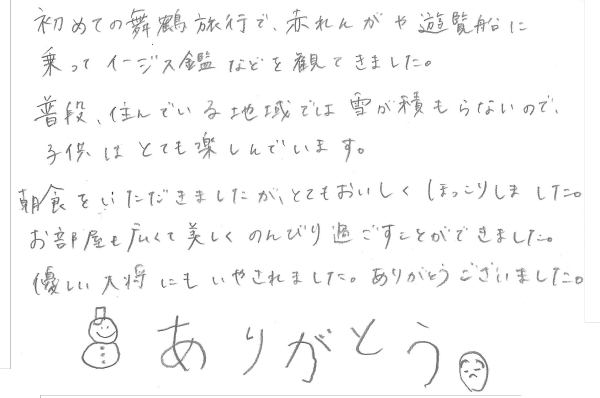 初めての舞鶴旅行で、赤れんがや遊覧船に
乗ってイージス鑑などを観てきました。
普段、住んでいる地域では雪が積もらないので、
子供はとても楽しんでいます。
朝食をいただきましたが、とてもおいしくほっこりしました。
お部屋も広くて美しくのんびり過ごすことができました。
優しい大将にもいやされました。ありがとうございました。
ありがとう